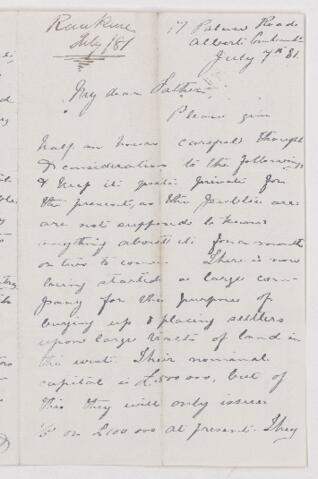 July /81
17 Palace Road
Albert Embankt
July 7th 81.
My dear Father,
Please give
half an hours careful thought
& consideration to the following
& keep it quite private for
the present, as the public are
are not supposed to know
anything about it for a month
or two to come. There is now
being started a large com-
pany for the purpose of
buying up & placing settlers
upon large tracts of land in
the west. Their nominal
capital is £500 000, but of
this they will only issue
1/5 or £100 000 at present. They